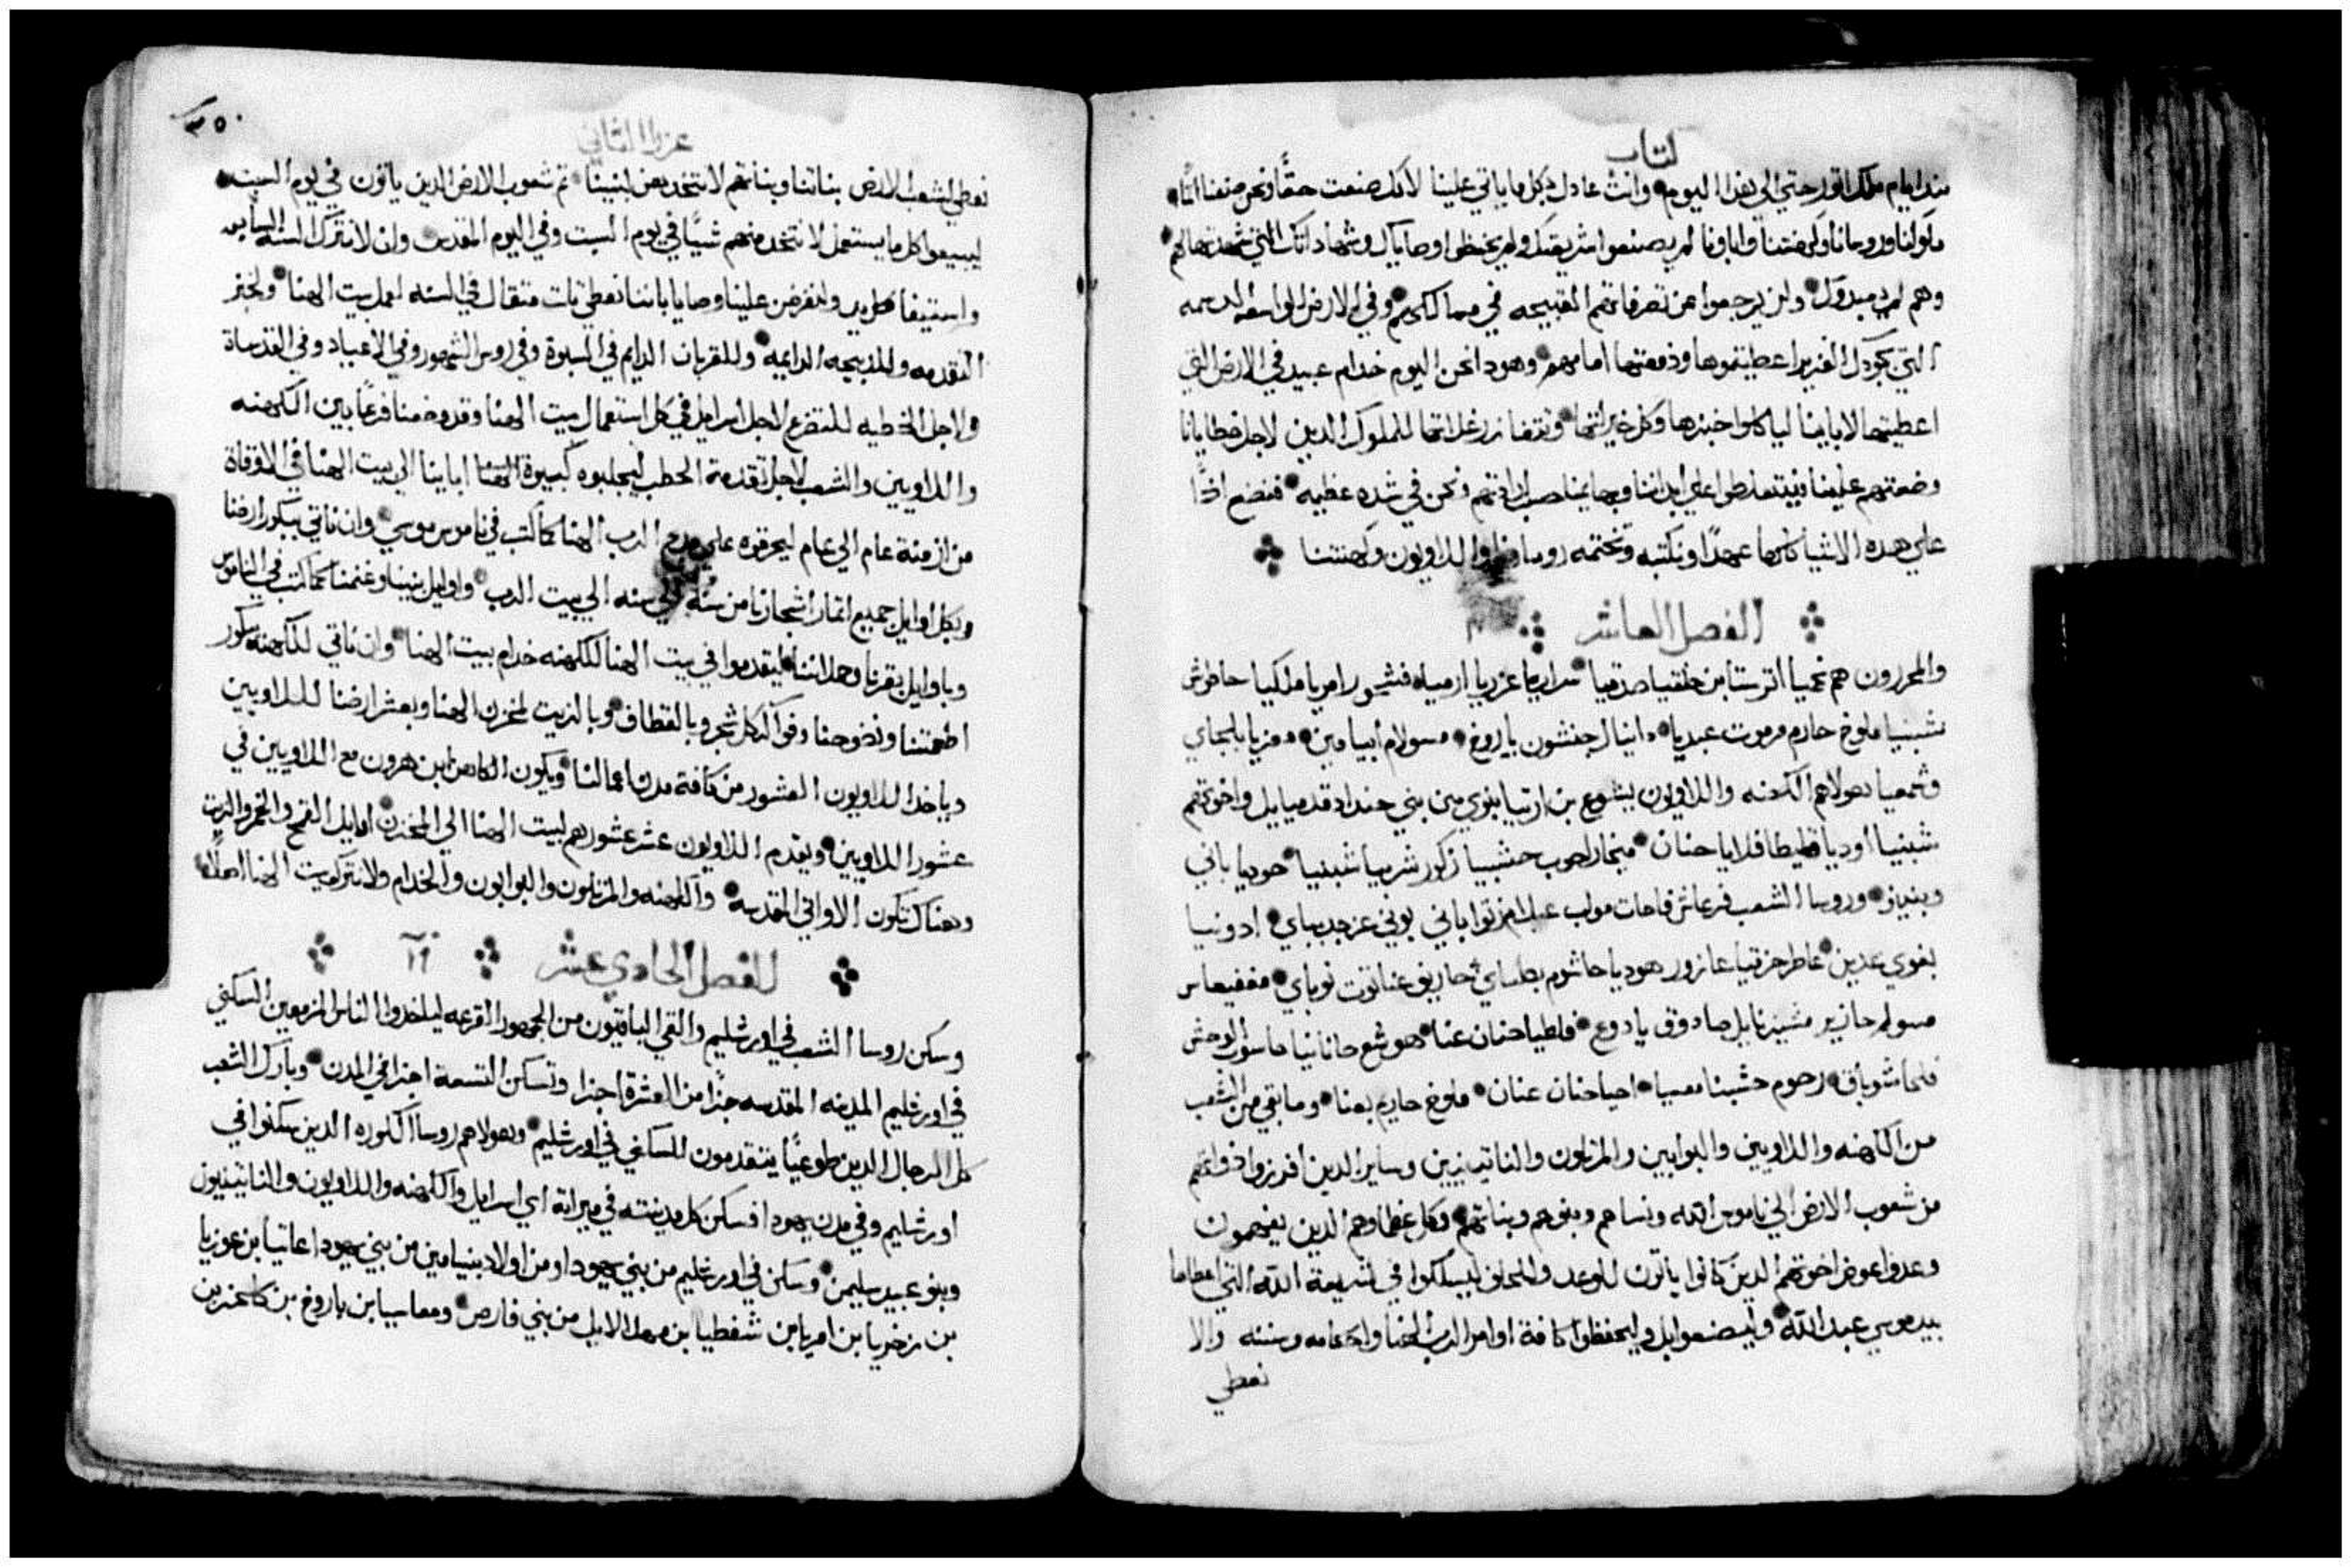 كتاب
مند ايام ملك اتور حتي الي هدا اليوم وانت عادل بكل ما ياتي علينا لانك صنعت حقًا ونحن صنعنا اثمًا
ملوكنا وروسانا وكهنتنا واباونا لم يصنعوا شريعتك ولم يحفظوا وصاياك وشهاداتك التي شهدتها لهم
وهم لم يعبدوك ولن يرجعوا عن تصرفاتهم القبيحه في ممالكهم وفي الارض الواسعه الدسمه
التي بجودك الغزير اعطيتموها ودفعتها امامهم وهودا نحن اليوم خدام عبيد في الارض التي
اعطيتها لاباينا لياكلوا خبزها وكل خيراتها وتتضاعف غلاتها للملوك الدين لاجل خطايانا
وضعتهم علينا فيتسلطوا علي ابداننا وبهايمنا حسب ارادتهم ونحن في شده عظيمه فنضع ادًا
علي هده الاشيا كلها عهدًا ونكتبه وتختمه روسانا واللاويون وكهنتنا
الفصل العاشر
والمحررون هم نحميا اترستا بن حلقيا صدقيا سرايا عزريا ارمياه فشحور امريا ملكيا حاطوش
شبنيا ملوخ حارم مرموت عبديا دانيال جنتون باروخ مسولام ابيا مين معزيا بلجاي
وشمعيا هولاهم الكهنه واللاويون يشوع بن ازنيا بنوي من بني حنداد قدميايل واخوتهم
شبنيا اوديا قليطا فلايا حنان ميخا راحوب حشبيا زكور شربيا شبنيا هوديا باني
وبنينو وروسا الشعب فرعاش فاحات مواب عيلام زتوا باني بوني عزجد بباي ادونيا
بغوي عدين عاطر حزقيا عازور هوديا حاشوم بصاي حاريف عناتوت نوباي مغفيعاس
مسولم حازير مشيزنابل صادوق يادوع فلطيا حنان عنايا هوشع حانانيا هاسوب الوحش
فلحا شوباق رحوم حشبنا معسيا احيا حنان عنان ملوخ حاريم بعنا وما بقي من الشعب
من الكهنه واللاويين والبوابين والمرتلون والناتينيين وساير الدين افرزوا دواتهم
من شعوب الارض الي ناموس الله ونساهم وبنوهم وبناتهم وكل عظماوهم الدين يفهمون
وعدوا عوض اخوتهم الدين كانوا ياتون للوعد والحلف ليسلكوا في شريعة الله التي اعطاها
بيد موسي عبد الله وليصنعوا بل وليحفظوا كافة اوامر الرب الهنا واحكامه وسننه والا
نعطي
٣٥٠
عزرا الثاني
نعطي لشعب الارض بناتنا وبناتهم لا نتخد بعض لبنينا ثم شعوب الارض الدين ياتون في يوم السبت
ليبيعوا كل ما يستعمل لا نتخد منهم شيًا في يوم السبت وفي اليوم المقدس وان لا نترك السنه السابعه
واستيفا كل يد ولنفرض علينا وصايا باننا نعطي تلت متقال في السنه لعمل بيت الهنا ولخبز
التقدمه وللدبيحه الدايمه وللقربان الدايم في السبوة وفي روس الشهور وفي الاعياد وفي القدساة
ولاجل الخطيه للتضرع لاجل اسرايل في كل استعمال بيت الهنا وقد وضعنا قرعًا بين الكهنه
واللاويين والشعب لاجل تقدمة الحطب ليجلبوه كبيوة ابهات اباينا الي بيت الهنا في الاوقاة
من ازمنة عام الي عام ليحرقوه علي مدبح الرب الهنا كما كتب في ناموس موسي وان ناتي ببكور ارضنا
وبكل اوايل جميع اتمار اشجارنا من سنه الي سنه الي بيت الرب واوايل بنينا وغنمنا كما كتب في الناموس
وباوايل بقرنا وحملاننا ليقدموا في بيت الهنا للكهنه خدام بيت الهنا وان ناتي للكهنه ببكور
اطعمتنا ونضوحنا وفواكه كل شجر وبالقطاف وبالزيت لمخزن الهنا وبعشر ارضنا لللاويين
وياخد اللاويون العشور من كافة مدن اعمالنا ويكون الكاهن ابن هرون مع اللاويين في
عشور اللاويين ويقدم اللاويون عشر عشورهم لبيت الهنا الي المخزن اوايل القمح والخمر والزيت
وهناك تكون الاواني المقدسه والكهنه والمرتلون والبوابون والخدام ولا نترك بيت الهنا اصلًا
الفصل الحادي عشر ١١
وسكن روسا الشعب في اورشليم والقي الباقيون من الجمهور القرعه لياخدوا الناس المزمعين السكني
في اورشليم المدينه المقدسه جزًا من العشرة اجزا وتسكن التسعة اجزا في المدن وبارك الشعب
كل الرجال الدين طوعيًا يتقدمون للسكني في اورشليم وهولاهم روسا الكوره الدين سكنوا في
اورشليم وفي مدن يهودا فسكن كل مدينته في ميراته اي اسرايل والكهنه واللاويون والناتينيون
وبنو عبيد سليمن وسكن في اورشليم من بني يهودا ومن اولاد بنيامين من بني يهودا عاتيا بن عوزيا
بن زخريا بن امريا بن شفطيا بن مهلالايل من بني فارص ومعاسيا بن باروخ بن كلحزين